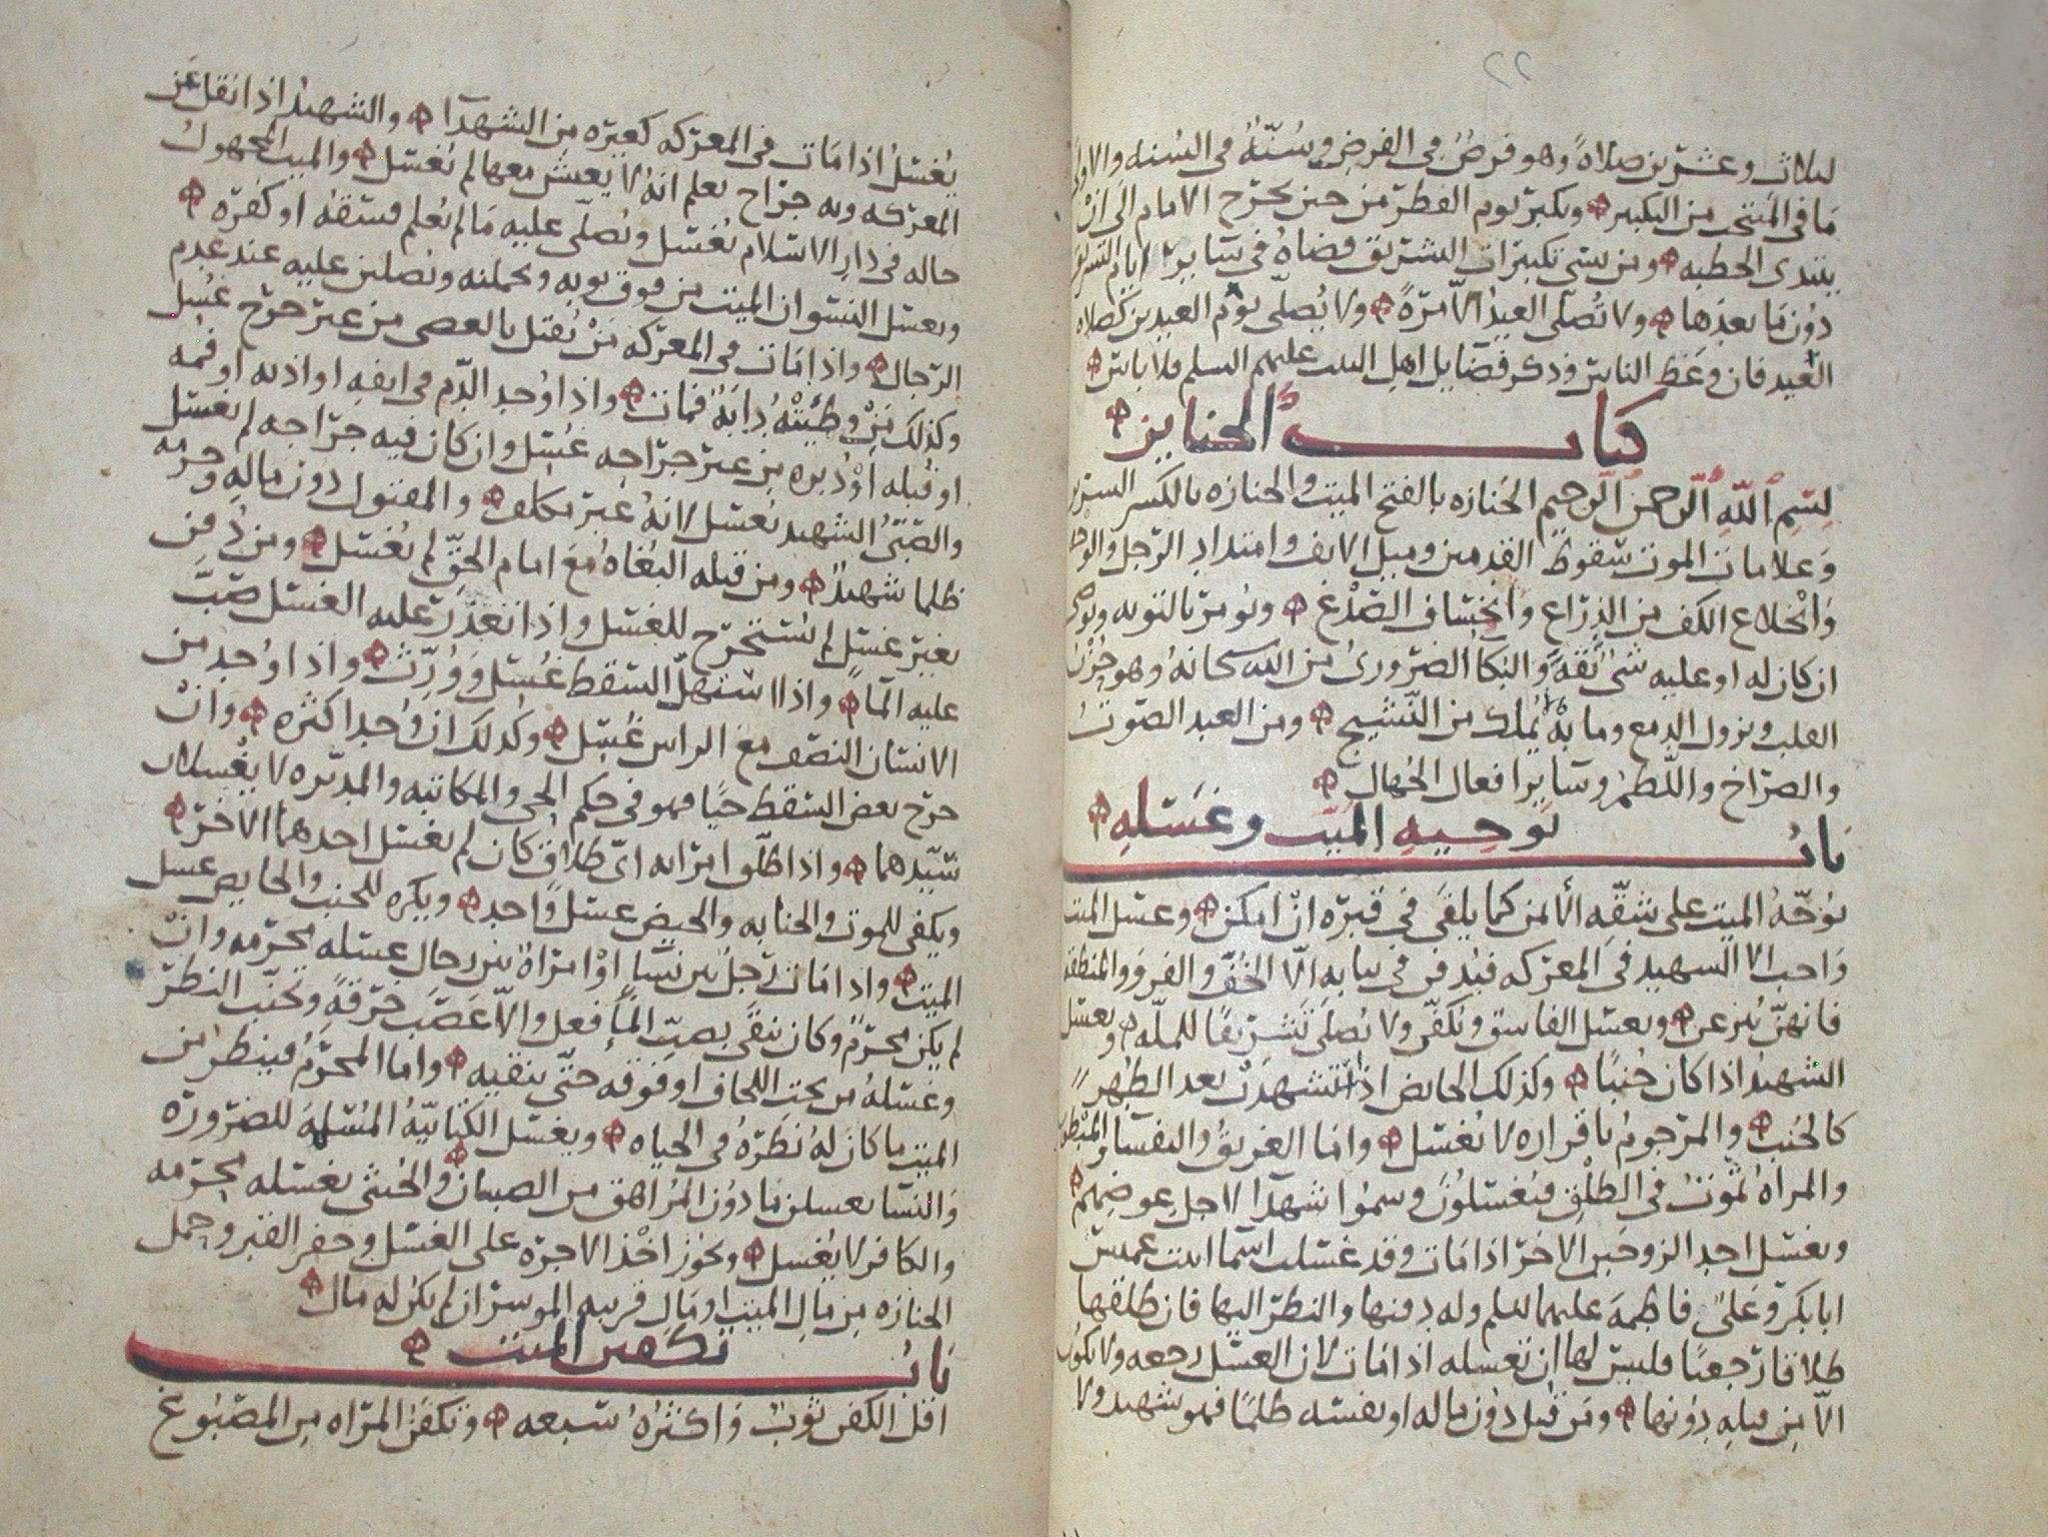 لثلاث وعشرين صلاةً وهو فرضٌ في الفرض وسُنّةٌ في السُنه والاولى
ما في المنتخب من التكبير ويكبر يوم الفطر من حين يخرج الامام الى ان
يبتدي الخطبه ومن نسي تكبيرات التشريق قضاهُ في ساير ايام التشريق
دُون ما بعدها ولا تُصلّى العيد الّا مرّةً ولا يُصلّى يوم العيدين كصلاه
العيد فان وعَظ الناس وذكر فضايل اهل البيت عليهم السلم فلا باس
كتاب الجنايز
بسم الله الرحمن الرحيم الجَنازه بالفتح الميت والجنازه بالكسر السرير
وَعلامات الموت سُقوط القدمين وميل الانف وامتداد الرّجل والوجه
وَانْخلاع الكف من الذِراع وانخساف الصّدْغ ويُومر بالتوبه ويُوصي
ان كان له او عليه شئ ثقةً والبكا الضروريُ من الله سبحانهُ وهو حُزْن
القلب ونزول الدمع وما لا يُملك من النّشيج ومن العبد الصّوتُ
والصراخ واللّطمُ وسآير افعال الجُهال
بَابُ توجيهِ الميّت وغَسلهِ
يُوجّهُ الميت على شقّه الأيمن كما يلقَى في قبره انْ امكن وغسل الميت
وَاجب الا الشهيد في المعركه فيُدفن في ثيابه الّا الخُفّ والفرو والمنطقه
فانهنّ يُنزعن ويغسل الفاسق ويُكفّن ولا يُصلّى تَشريفًا للملّه ويغسل
الشهيدُ اذا كان جُنبًا وكذلك الحايض اذا استشهدتْ بعد الطُهر
كالجُنب والمرجومُ باقراره لا يُغسّل واما الغريقُ والنفسا والمبْطون
والمراهُ تموتُ في الطَلْق فيُغسّلُونَ وسمّوا شهدآ لاجل عوضِهم
ويغسّل احد الزوجَين الاخرَ اذا مَات وقد غسّلت اسما ابنت عميس
ابا بكر وعَليٌ فاطمةَ عليهما السلم وله دفنها والنظر اليها فان طلقها
طلاقا رَجعيًا فليسَ لها ان تغسله اذا مَات لان الغسل رجعه ولا تكون
الّا مِن قبلهِ دُونها ومَن قُتل دُون ماله او نفسه ظلمًا فهو شهيد ولا
يُغسّلُ اذا مَات في المعركه كغيره مِن الشهدآ والشهيدُ اذا نقل عَن
المعركه وبه جراح يعلم انّهُ لا يعيش معها لم يُغسّل والميت المجهولُ
حاله في دار الاسلام يُغسّل ويُصلّى عليه مَا لم يُعلم فسقهُ او كفره
ويغسل النسوان الميت من فوق ثوبه ويحملنه ويُصلين عليه عند عدم
الرّجال واذا مَات في المعركه مَنْ يُقتل بالعصى من غير جرْح غُسل
وكذلك مَنْ وطئتْهُ دابّةٌ فمات واذا وُجد الدّم في انفهِ او اذنه او فمه
او قُبله اوْ دُبره من غير جراحه غُسّل وان كان فيه جراحه لم يغسل
والصّبيُ الشهيد يُغسّل لانهُ غير مكلف والمقتول دون مالهِ وحرمه
ظلما شهيدٌ ومن قتله البُغاهُ معَ امام الحقّ لم يُغسّل ومن دُفن
بغير غسلٍ لم يُستخرَج للغسل واذا تعذر عليه الغسل صُبّ
عليه المآ واذا استهلّ السقط غُسِل ووُرِّثَ واذا وُجد من
الانسان النصف معَ الراس غُسّل وكذلك ان وُجد اكثره وانْ
خرج بعض السقط حيًا فهو في حكم الحي والمكاتبه والمدبّره لا يغْسلان
سيّدهما واذا طلّق امراته ايّ طلاق كان لم يغسل احدهما الاخر
ويكفي للموت والجنابه والحيض غسلٌ واحد ويكره للجنب والحايض غسل
الميت واذا مَات رجلٌ بين نسآءٍ اوْ امراةٌ بين رجالٍ غسله محرَمه وانْ
لم يكن محرمٌ وكان ينقَى بصبّ المآ فعل والّا عَصَّبَ خرقةً وتجنّب النظرَ
وغَسلهُ من تحت اللحاف او فوقه حتّى ينقيه واما المحرَمُ فينظر من
الميت ما كان لهُ نظرهُ في الحياه ويغسل الكتابيّهُ المُسلمة للضروره
وَالنسآ يغسلن مَا دُون المُراهق من الصبيان والخنثى يغسله محرمه
والكافر لا يُغسل ويجوزُ اخْذ الاجره على الغسل وحفر القبر وحمل
الجنازه مِن مَالِ الميت او مَال قريبه الموسر ان لم يكن له مال
بَابُ تكفين الميّت
اقل الكفن ثوبٌ وَاكثرُهُ سبعه وتكفن المراه مِن المصبُوغ